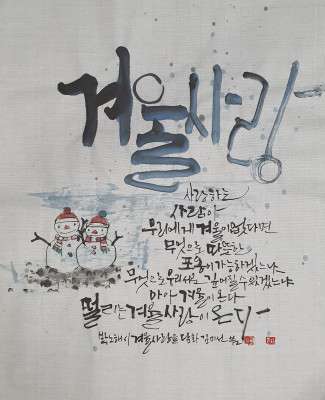 겨울사랑
사랑하는
사람아
우리에게 겨울이 없다면
무엇으로 따뜻한
포옹이 가능하겠느냐
무엇으로 우리 서로 깊어질 수 있겠느냐
아아 겨울이 온다
떨리는 겨울 사랑이 온다
박노해 시 겨울사랑을 담화 김미선 쓰고